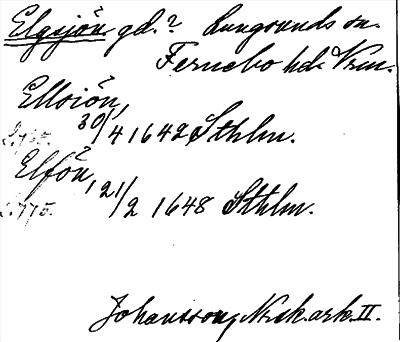 Elgsjön gd.? Lungsunds sn.
Fernebo hd. Vrm.
Ellsiön,
30/4 1642 Sthlm.
Elfön,
21/2 1648 Sthlm.
Johanssons, N:sk. ark. II.